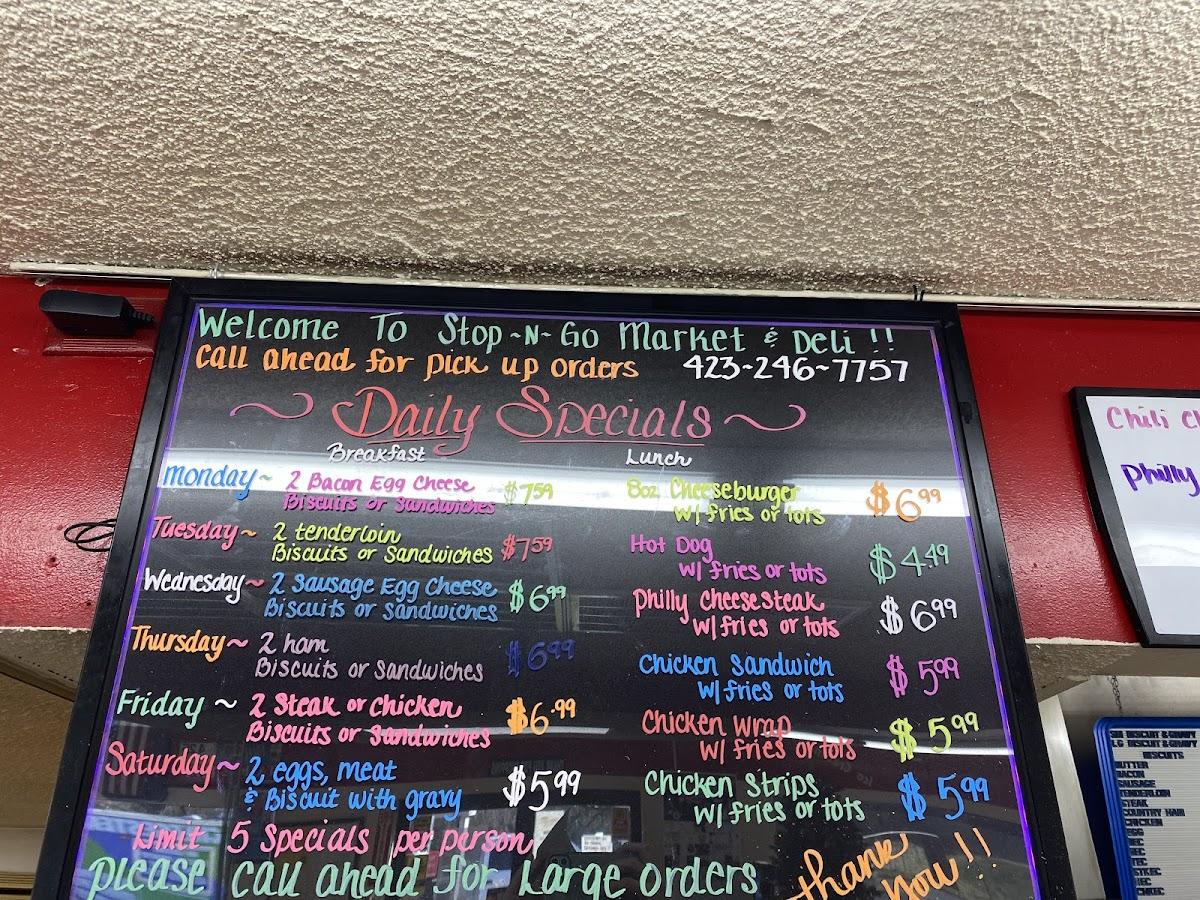 Welcome To Stop~N~Go Market & Deli !!
Call ahead for pick up orders 423~246~7757
~ Daily Specials ~
Breakfast Lunch
Monday~ 2 Bacon Egg Cheese $7.59 8oz Cheeseburger $6.99
Biscuits or Sandwiches w/ fries or tots
Tuesday~ 2 tenderloin $7.59 Hot Dog $4.49
Biscuits or Sandwiches w/ fries or tots
Wednesday~ 2 Sausage Egg Cheese $6.99 Philly Cheesesteak $6.99
Biscuits or Sandwiches w/ fries or tots
Thursday~ 2 ham $6.99 Chicken Sandwich $5.99
Biscuits or Sandwiches w/ fries or tots
Friday ~ 2 Steak or chicken $6.99 Chicken Wrap $5.99
Biscuits or Sandwiches w/ fries or tots
Saturday~ 2 eggs, meat $5.99 Chicken Strips $5.99
& Biscuit with gravy w/ fries or tots
Limit 5 Specials per person
Please call ahead for Large orders
thank you!!
Chili
Philly
BISCUIT & GRAVY
LG BISCUIT & GRAVY
BISCUITS
BUTTER
BACON
SAUSAGE
TENDERLOIN
STEAK
COUNTRY HAM
CHICKEN
EGG